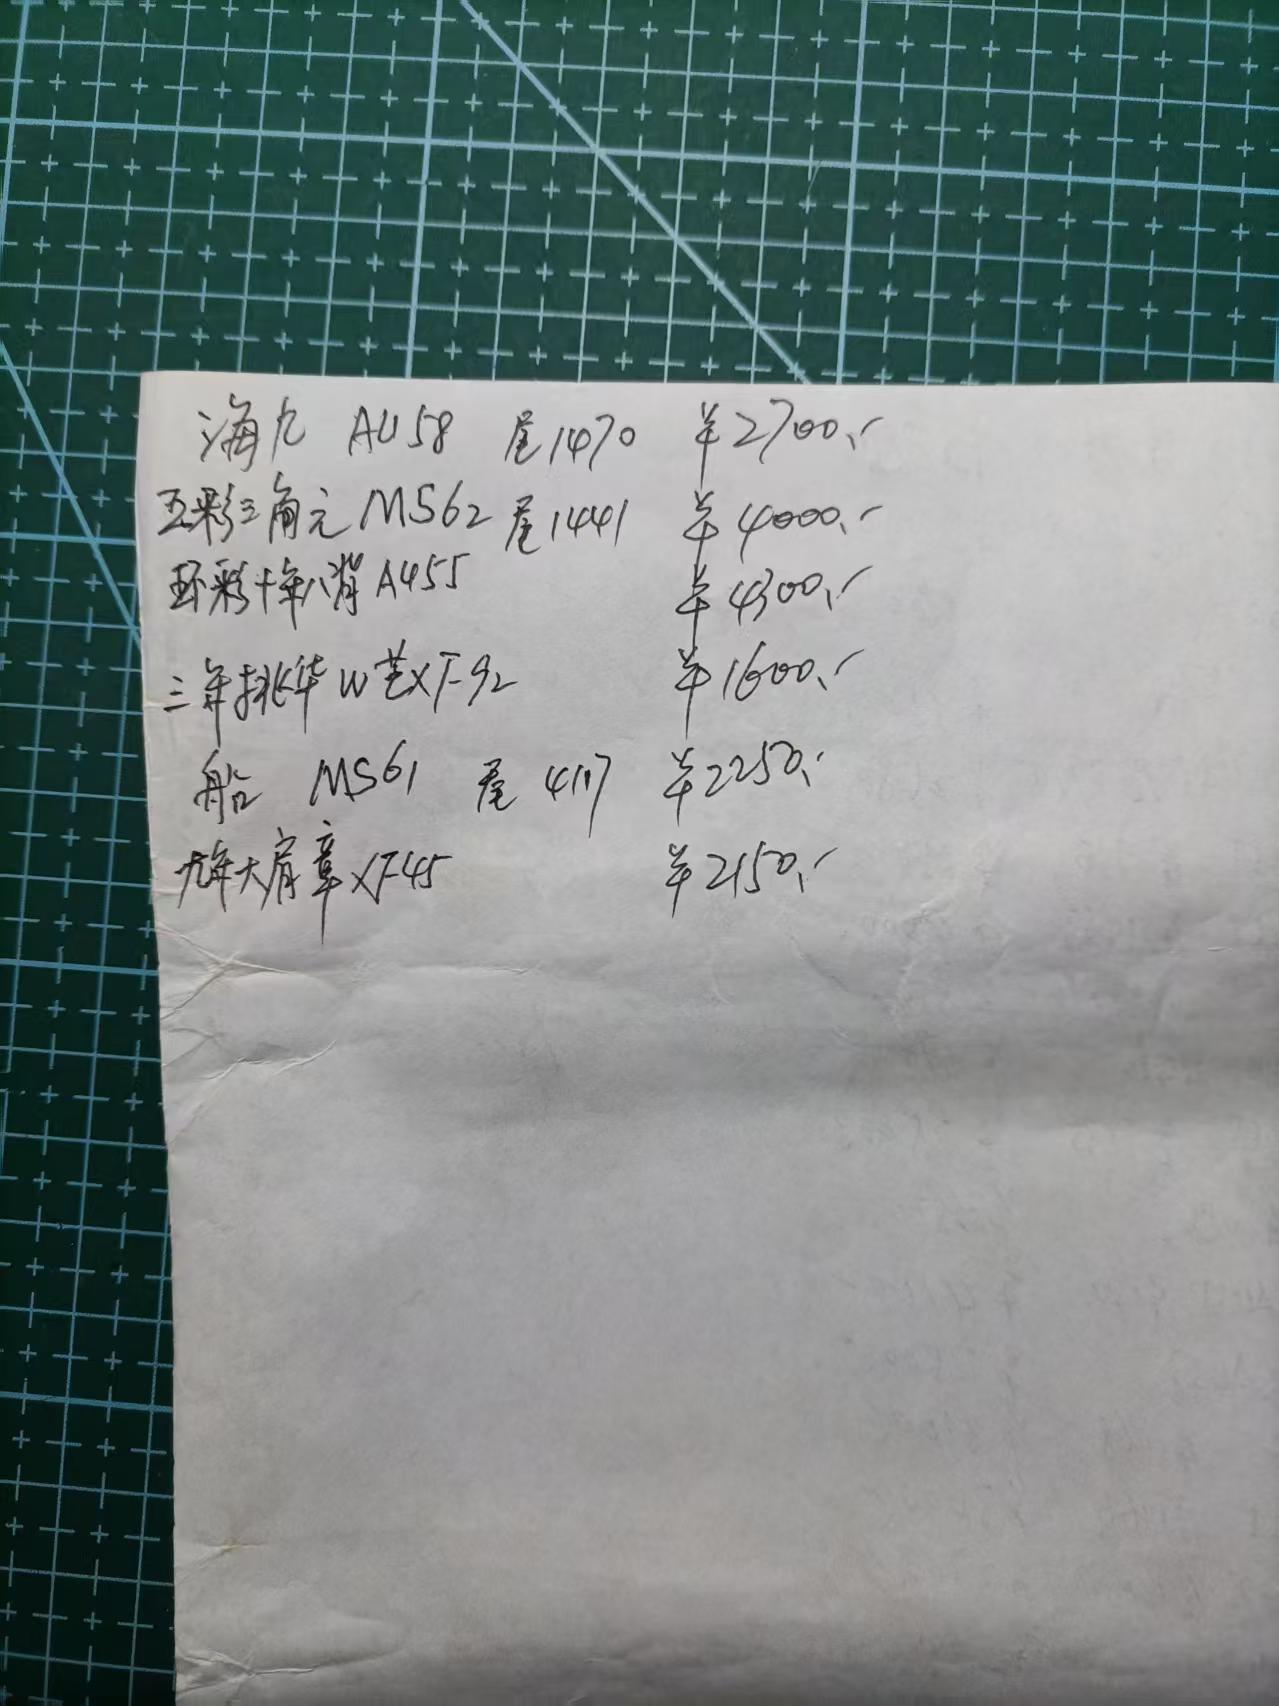 海九 AU58 尾1470 ¥2700.-
五彩三角元 MS62 尾1441 ¥4000.-
环彩十年八背 AU55 ¥4300.-
三年挑华 W艺XF92 ¥1600.-
船 MS61 尾 4117 ¥2250.-
九年大肩章 XF45 ¥2150.-